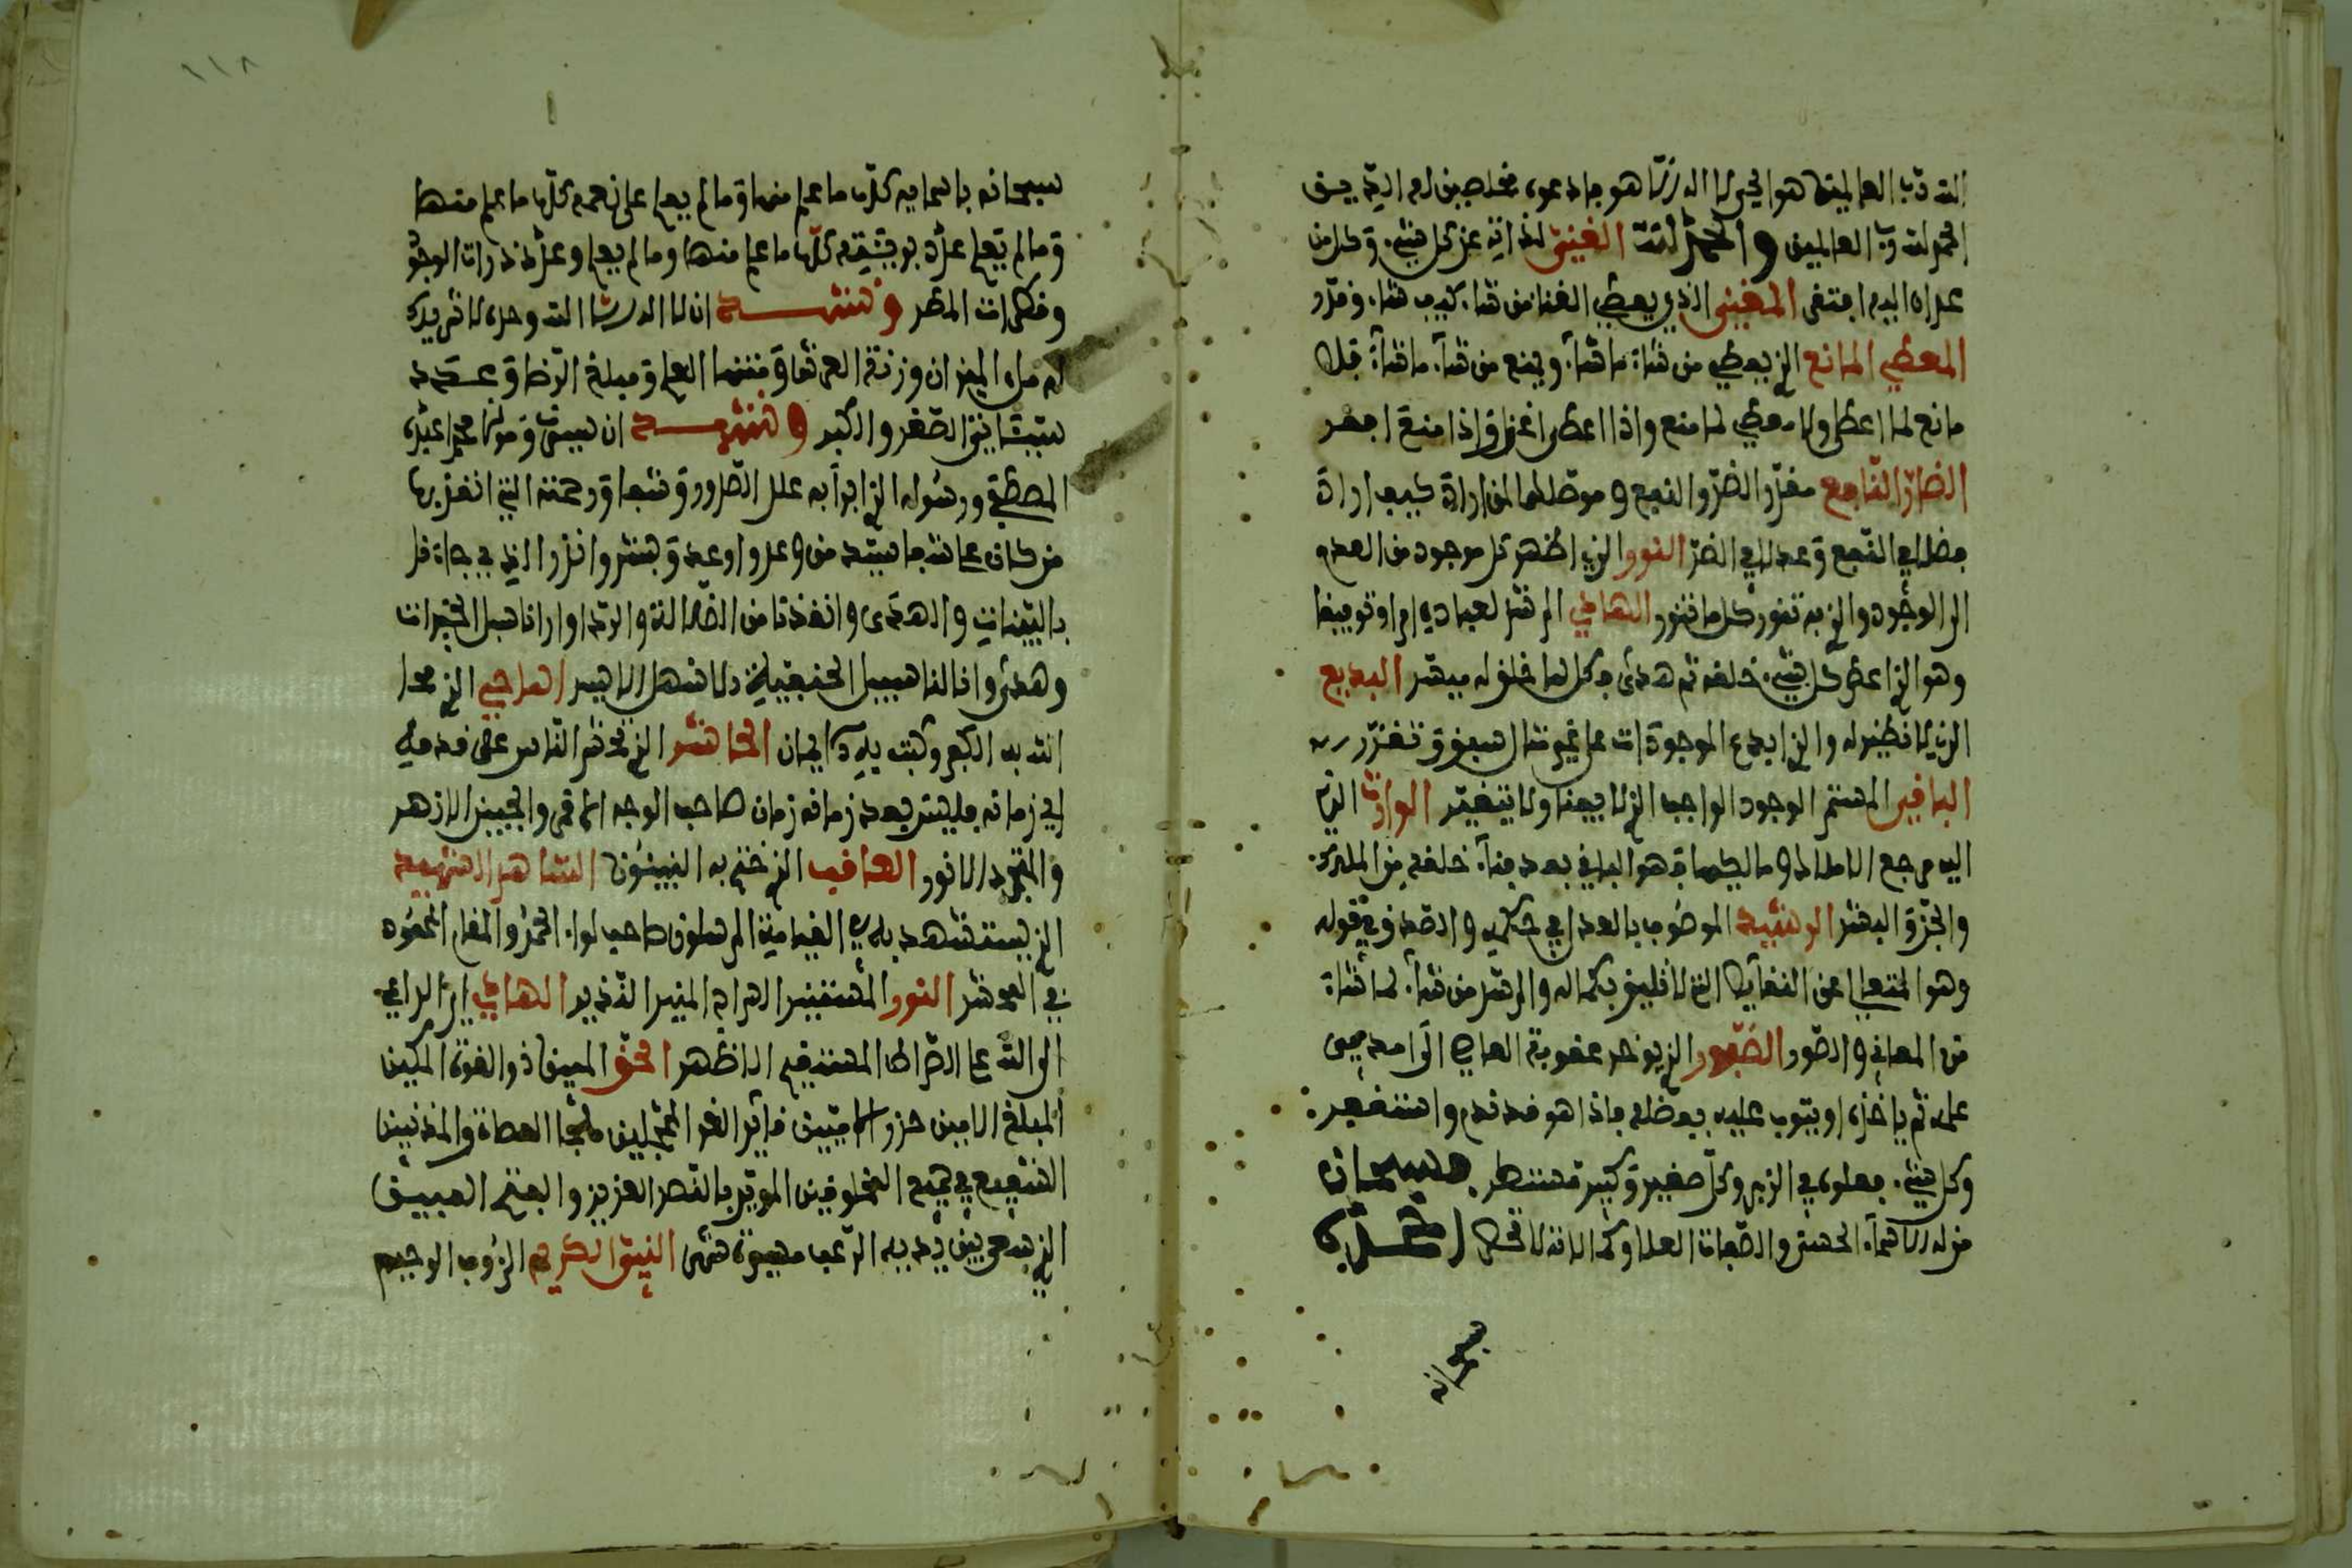 الله رب العالمين هو الحي لا اله الا هو فادعوه مخلصين له الدين
الحمد لله رب العالمين والحمد لله الغني لذاته عن كل شيء وكل من
عداه اليه افتقر المغني الذي يعطي الغنا من شاء كيف شاء وقدر
المعطي المانع الذي يعطي من شاء ما شاء ويمنع من شاء ما شاء فلا
مانع لما اعطى ولا معطي لما منع واذا اعطى اغنى واذا منع افقر
الضار النافع مقدر الضر والنفع وموصلهما لمن اراد كيف اراد
فضلا في النفع وعدلا في الضر النور الذي اظهر كل موجود من العدم
الى الوجود والذي به تنور كل ما تنور الهادي المرشد لعباده
وهو الذي اعطى كل شيء خلقه ثم هدى فكل لما خلق له ميسر البديع
الذي لا نظير له والذي ابدع الموجودات على غير مثال سبق وتقرر
الباقي المستمر الوجود الواجب الذي لا يفنا ولا يتغير الوارث الذي
اليه مرجع الاملاك وما لكها وهو الباقي بعد فناء خلقه من الملك
والجن والبشر الرشيد الموصوف بالعدل في حكمه والصدق في قوله
وهو المتعالي عن النقايص التي لا تليق بكماله والمرشد من شاء لما شاء
من المعاني والصور الصبور الذي يوخر عقوبة العاصي الى امد
عله ثم ياخذه او يتوب عليه بفضله فاذا هو قد ندم واستغفر
وكل شيء فعلوه في الزبر وكل صغير وكبير مستطر فسبحان
من له الاسماء الحسنى والصفات العلا وكمالاته لا تحصى
سبحانه
١١٨
سبحانه باسمايه كلها ما علم منها وما لم يعلم على نعمه كلها ما علم منها
وما لم يعلم عدد بريته كلها ما علم منها وما لم يعلم وعدد ذرات الوجود
وقطرات المطر ونشهد ان لا اله الا الله وحده لا شريك
له ملء الميزان وزنة العرش ومنتهى العلم ومبلغ الرضا وعدد
ونشهد ان سيدنا ومولانا محمدا عبده
المصطفى ورسوله الذي ابرا به علل الصدور وشفا ورحمته التي انقذ بها
من كان على شفا وبشر وانذر الذي جاءنا
بالبينات والهدى وانقذنا من الضلالة والردا وارانا سبل الخيرات
وهدى السبيل الحنيفية الماحي الذي محا
الله به الكفر وثبت به الايمان الحاشر الذي يحشر الناس على قدميه
في زمانه فليس بعد زمانه زمان صاحب الوجه الاقمر والجبين الازهر
والانور العاقب الذي ختم به النبيئون الشاهد الشهيد
الذي يستشهد به في القيامة المرسلون صاحب لواء الحمد والمقام المحمود
في المحشر النور المستنير السراج المنير النذير الهادي الداعي
الى الله على الصراط المستقيم الاظهر الحق المبين ذو القوة المكين
المبلغ الامين حرز الاميين قائد الغر المحجلين ملجأ العصاة والمذنبين
الشفيع في جميع المخلوقين الموقر بالنصر العزيز والفتح المبين
الذي بين يديه الرعب مسيرة شهر النبي الكريم الرؤوف الرحيم